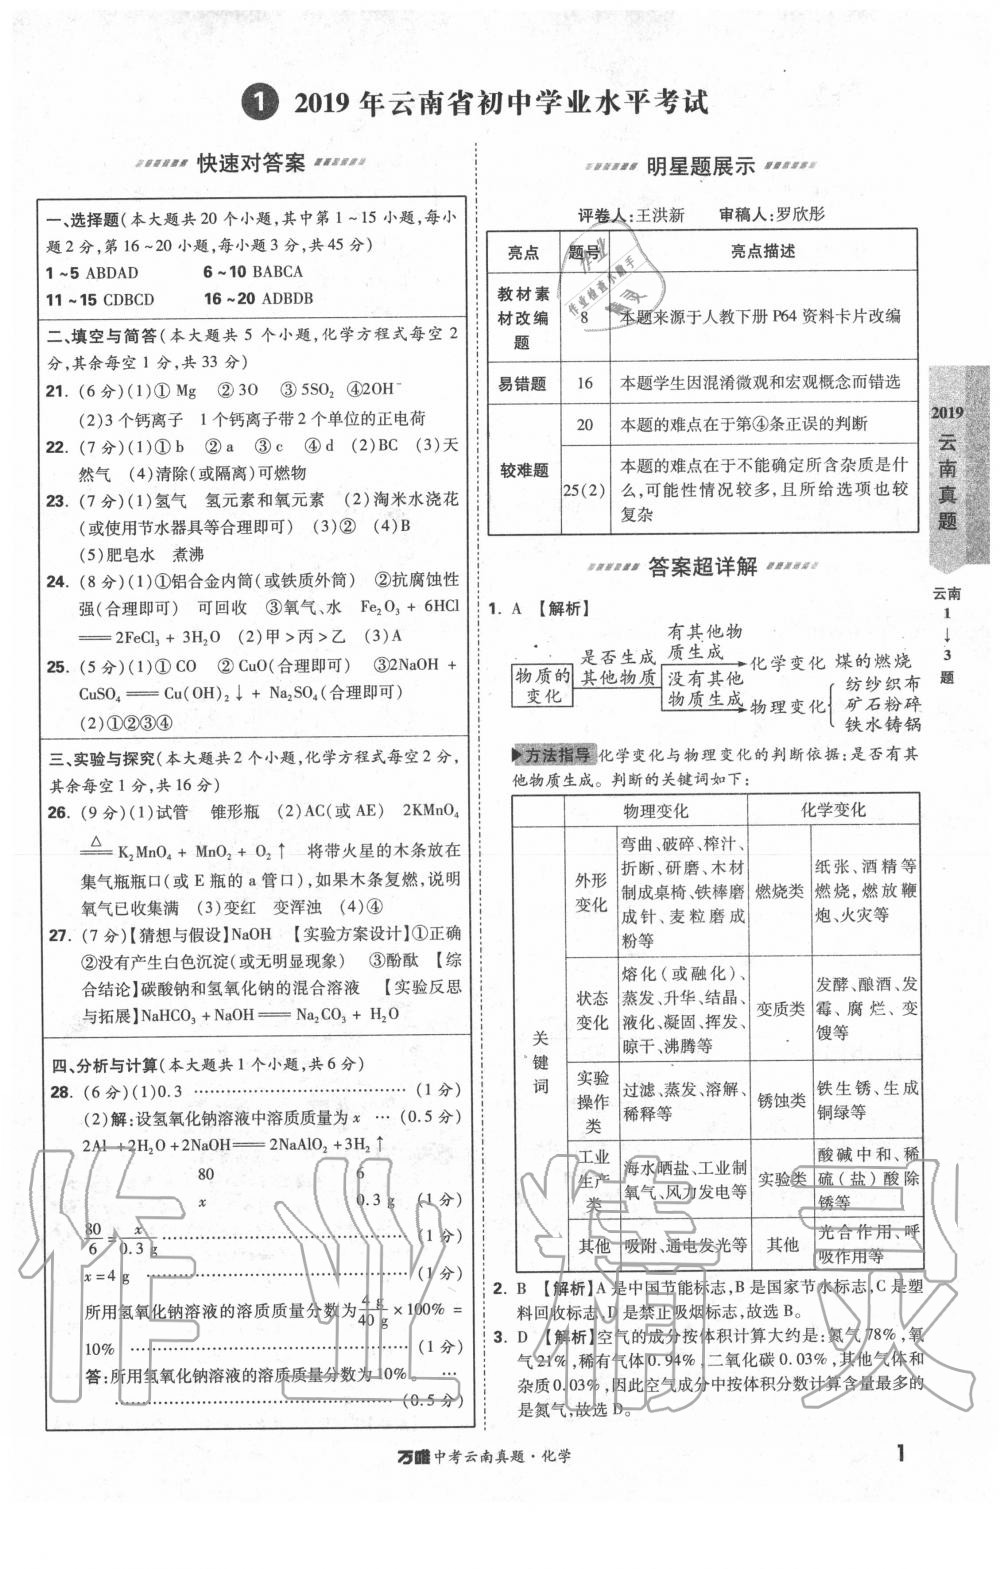 1 2019 年云南省初中学业水平考试
快速对答案
一、选择题(本大题共 20 个小题,其中第 1～15 小题,每小
题 2 分,第 16～20 小题,每小题 3 分,共 45 分)
1～5 ABDAD 6～10 BABCA
11～15 CDBCD 16～20 ADBDB
二、填空与简答(本大题共 5 个小题,化学方程式每空 2
分,其余每空 1 分,共 33 分)
21. (6 分)(1)① Mg ②3O ③5SO₂ ④2OH⁻
(2)3 个钙离子 1 个钙离子带 2 个单位的正电荷
22. (7 分)(1)①b ②a ③c ④d (2)BC (3)天
然气 (4)清除(或隔离)可燃物
23. (7 分)(1)氢气 氢元素和氧元素 (2)淘米水浇花
(或使用节水器具等合理即可) (3)② (4)B
(5)肥皂水 煮沸
24. (8 分)(1)①铝合金内筒(或铁质外筒) ②抗腐蚀性
强(合理即可) 可回收 ③氧气、水 Fe₂O₃ + 6HCl
══2FeCl₃ + 3H₂O (2)甲＞丙＞乙 (3)A
25. (5 分)(1)① CO ② CuO(合理即可) ③2NaOH +
CuSO₄══Cu(OH)₂↓ + Na₂SO₄(合理即可)
(2)①②③④
三、实验与探究(本大题共 2 个小题,化学方程式每空 2 分,
其余每空 1 分,共 16 分)
26. (9 分)(1)试管 锥形瓶 (2)AC(或 AE) 2KMnO₄
△
══K₂MnO₄ + MnO₂ + O₂↑ 将带火星的木条放在
集气瓶瓶口(或 E 瓶的 a 管口),如果木条复燃,说明
氧气已收集满 (3)变红 变浑浊 (4)④
27. (7 分)【猜想与假设】NaOH 【实验方案设计】①正确
②没有产生白色沉淀(或无明显现象) ③酚酞 【综
合结论】碳酸钠和氢氧化钠的混合溶液 【实验反思
与拓展】NaHCO₃ + NaOH══Na₂CO₃ + H₂O
四、分析与计算(本大题共 1 个小题,共 6 分)
28. (6 分)(1)0.3 ………………………… (1 分)
(2)解:设氢氧化钠溶液中溶质质量为 x … (0.5 分)
2Al +2H₂O +2NaOH══2NaAlO₂ +3H₂↑
80 6
x 0.3 g (1 分)
80/6 = x/0.3 g ………………………… (1 分)
x = 4 g ………………………… (1 分)
所用氢氧化钠溶液的溶质质量分数为 4 g/40 g ×100% =
10% ………………………… (1 分)
答:所用氢氧化钠溶液的溶质质量分数为 10%。 …
………………………… (0.5 分)
明星题展示
评卷人:王洪新 审稿人:罗欣彤
亮点 题号 亮点描述
教材素
材改编
题 8 本题来源于人教下册 P64 资料卡片改编
易错题 16 本题学生因混淆微观和宏观概念而错选
较难题 20 本题的难点在于第④条正误的判断
25(2) 本题的难点在于不能确定所含杂质是什
么,可能性情况较多,且所给选项也较
复杂
答案超详解
1. A 【解析】
物质的
变化
是否生成
其他物质
有其他物
质生成
化学变化 煤的燃烧
没有其他
物质生成
物理变化
纺纱织布
矿石粉碎
铁水铸锅
方法指导 化学变化与物理变化的判断依据:是否有其
他物质生成。判断的关键词如下:
物理变化 化学变化
关
键
词
外形
变化
弯曲、破碎、榨汁、
折断、研磨、木材
制成桌椅、铁棒磨
成针、麦粒磨成
粉等
燃烧类
纸张、酒精等
燃烧,燃放鞭
炮、火灾等
状态
变化
熔化(或融化)、
蒸发、升华、结晶、
液化、凝固、挥发、
晾干、沸腾等
变质类
发酵、酿酒、发
霉、腐烂、变
馊等
实验
操作
类
过滤、蒸发、溶解、
稀释等
锈蚀类
铁生锈、生成
铜绿等
工业
生产
类
海水晒盐、工业制
氧气、风力发电等
实验类
酸碱中和、稀
硫(盐)酸除
锈等
其他 吸附、通电发光等 其他
光合作用、呼
吸作用等
2. B 【解析】A 是中国节能标志,B 是国家节水标志,C 是塑
料回收标志,D 是禁止吸烟标志,故选 B。
3. D 【解析】空气的成分按体积计算大约是:氮气 78%,氧
气 21%,稀有气体 0.94%,二氧化碳 0.03%,其他气体和
杂质 0.03%,因此空气成分中按体积分数计算含量最多的
是氮气,故选 D。
2019
云
南
真
题
云南
1
↓
3
题
万唯中考云南真题·化学
1
作业精灵